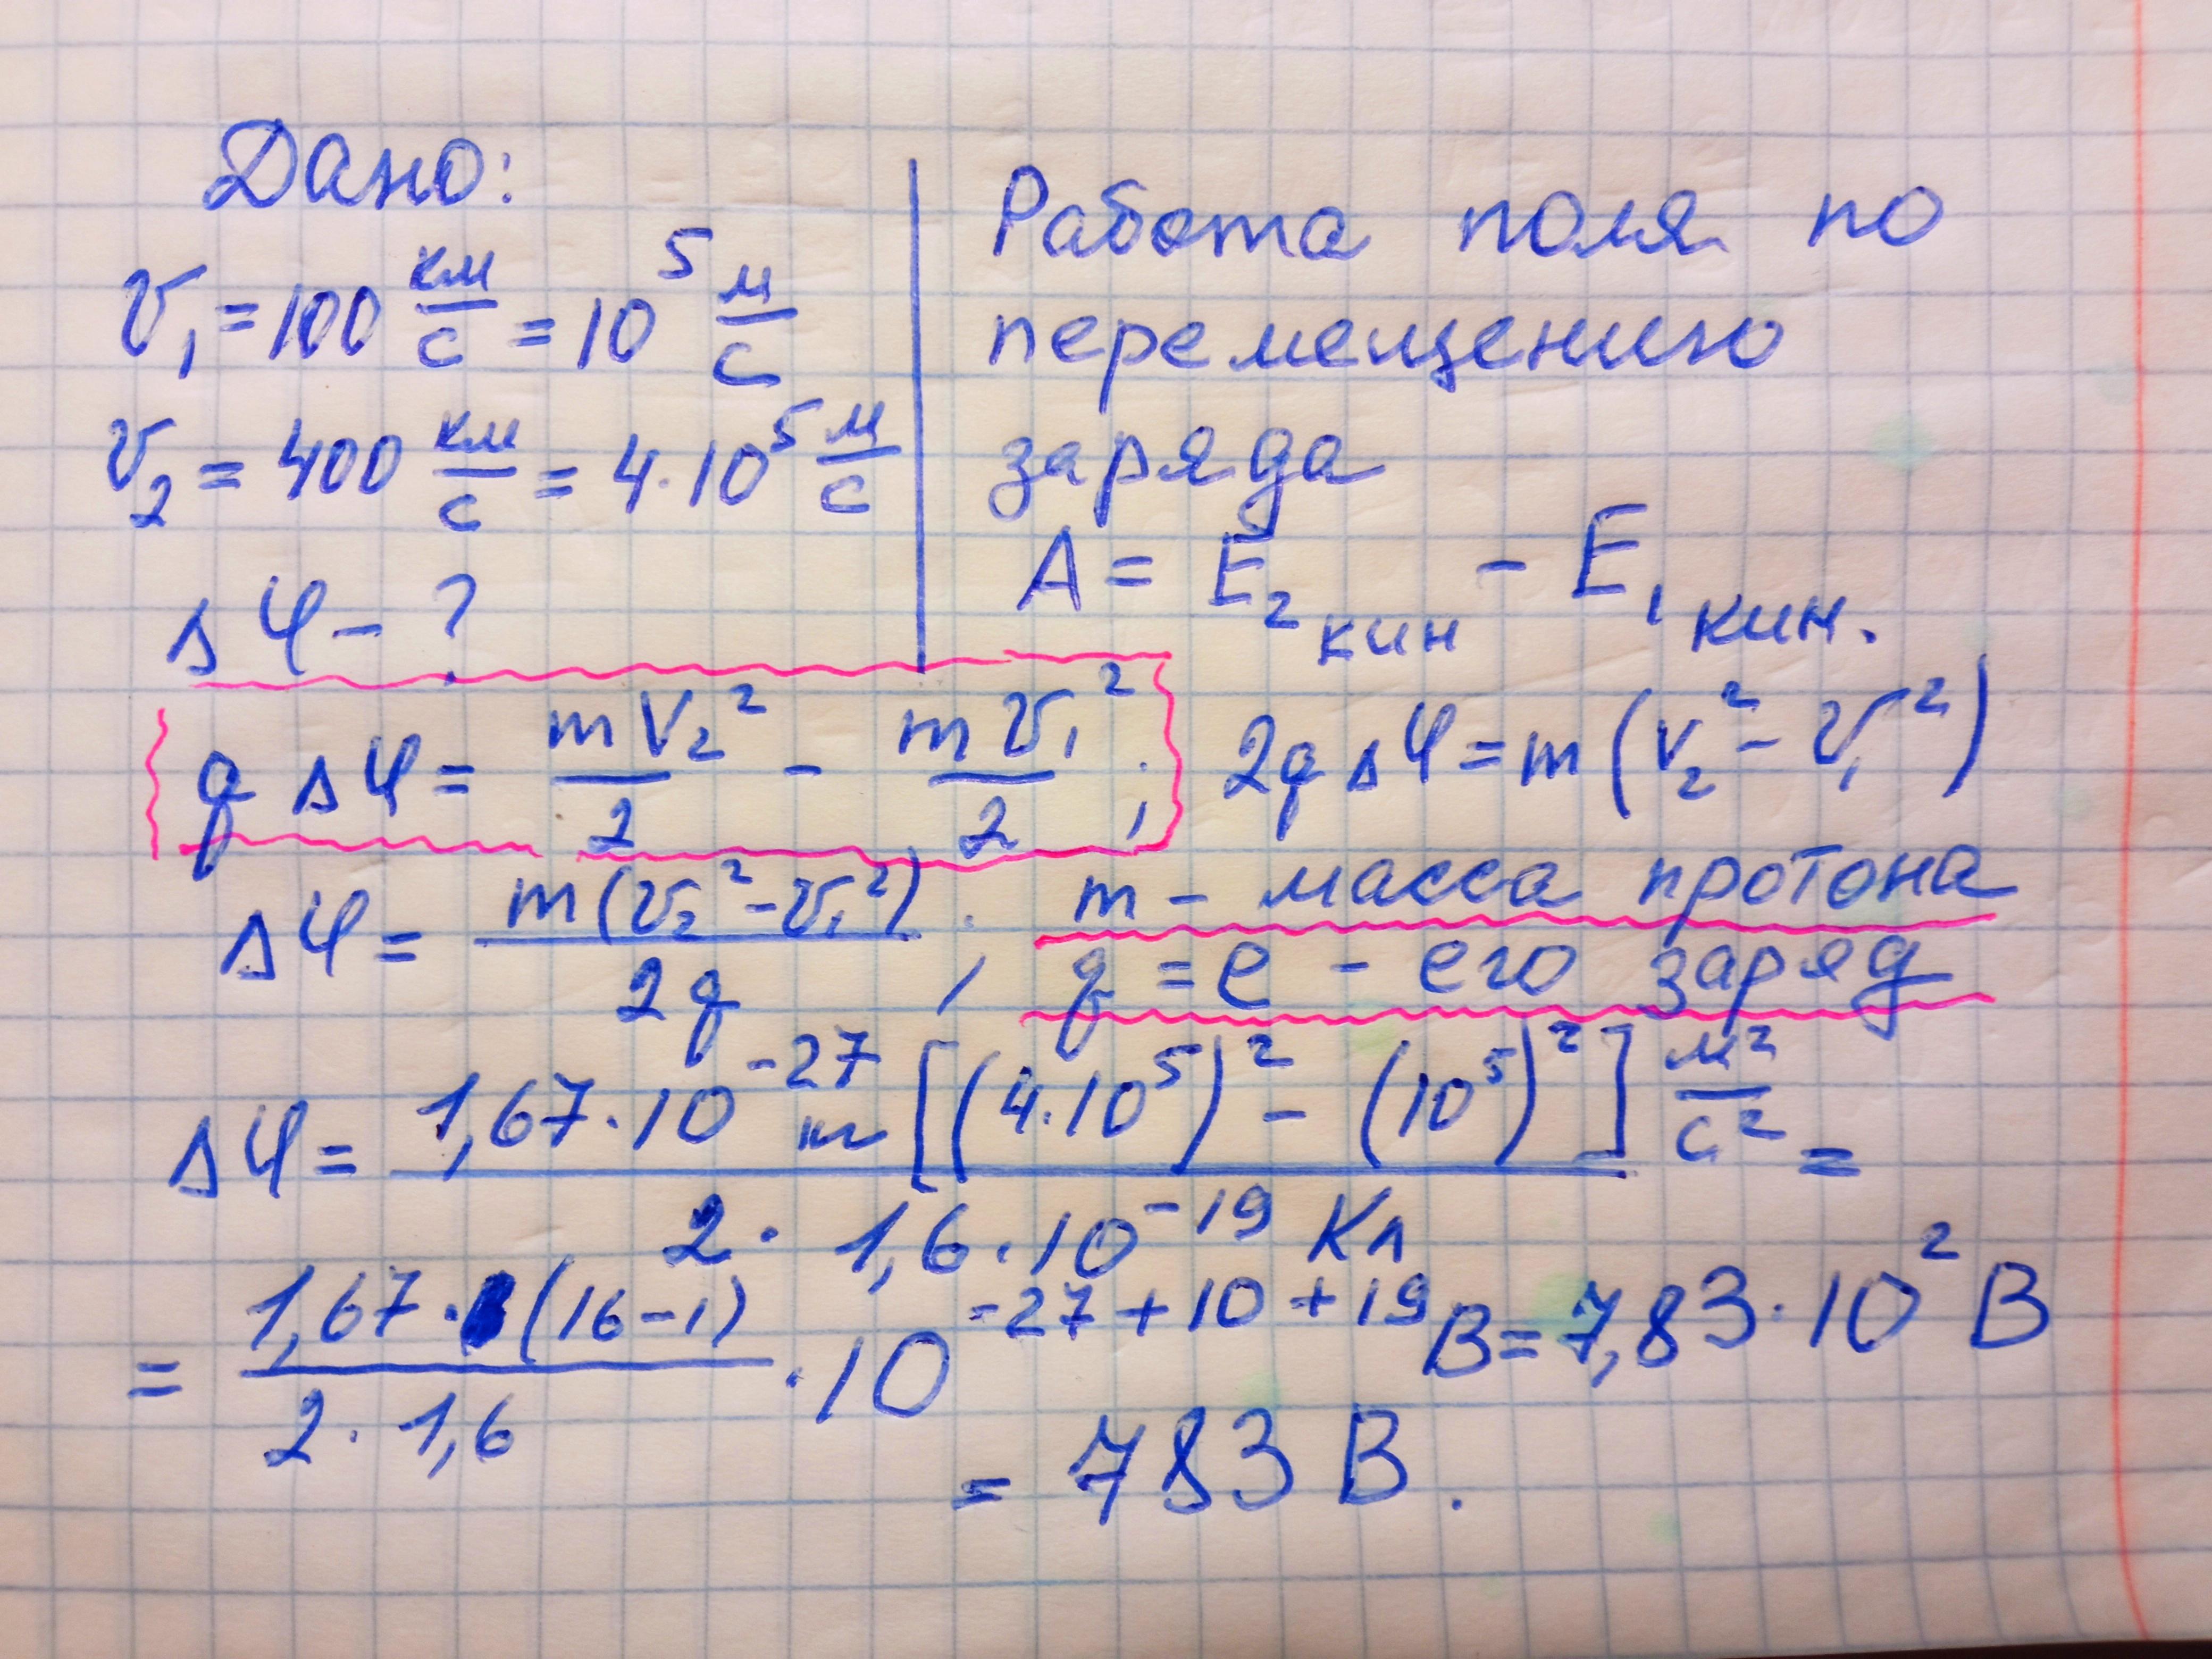 Дано:
v₁ = 100 км/с = 10⁵ м/с
v₂ = 400 км/с = 4·10⁵ м/с
Δφ – ?
Работа поля по
перемещению
заряда
A = E₂ кин – E₁ кин.
q Δφ = mv₂²/2 – mv₁²/2 ; 2qΔφ = m(v₂² – v₁²)
Δφ = m(v₂² – v₁²)/2q ; m – масса протона
q = e – его заряд
Δφ = 1,67·10⁻²⁷ кг [(4·10⁵)² – (10⁵)²] м²/с² / 2·1,6·10⁻¹⁹ Кл =
= 1,67·(16–1)/2·1,6 · 10⁻²⁷⁺¹⁰⁺¹⁹ В = 7,83·10² В
= 783 В.